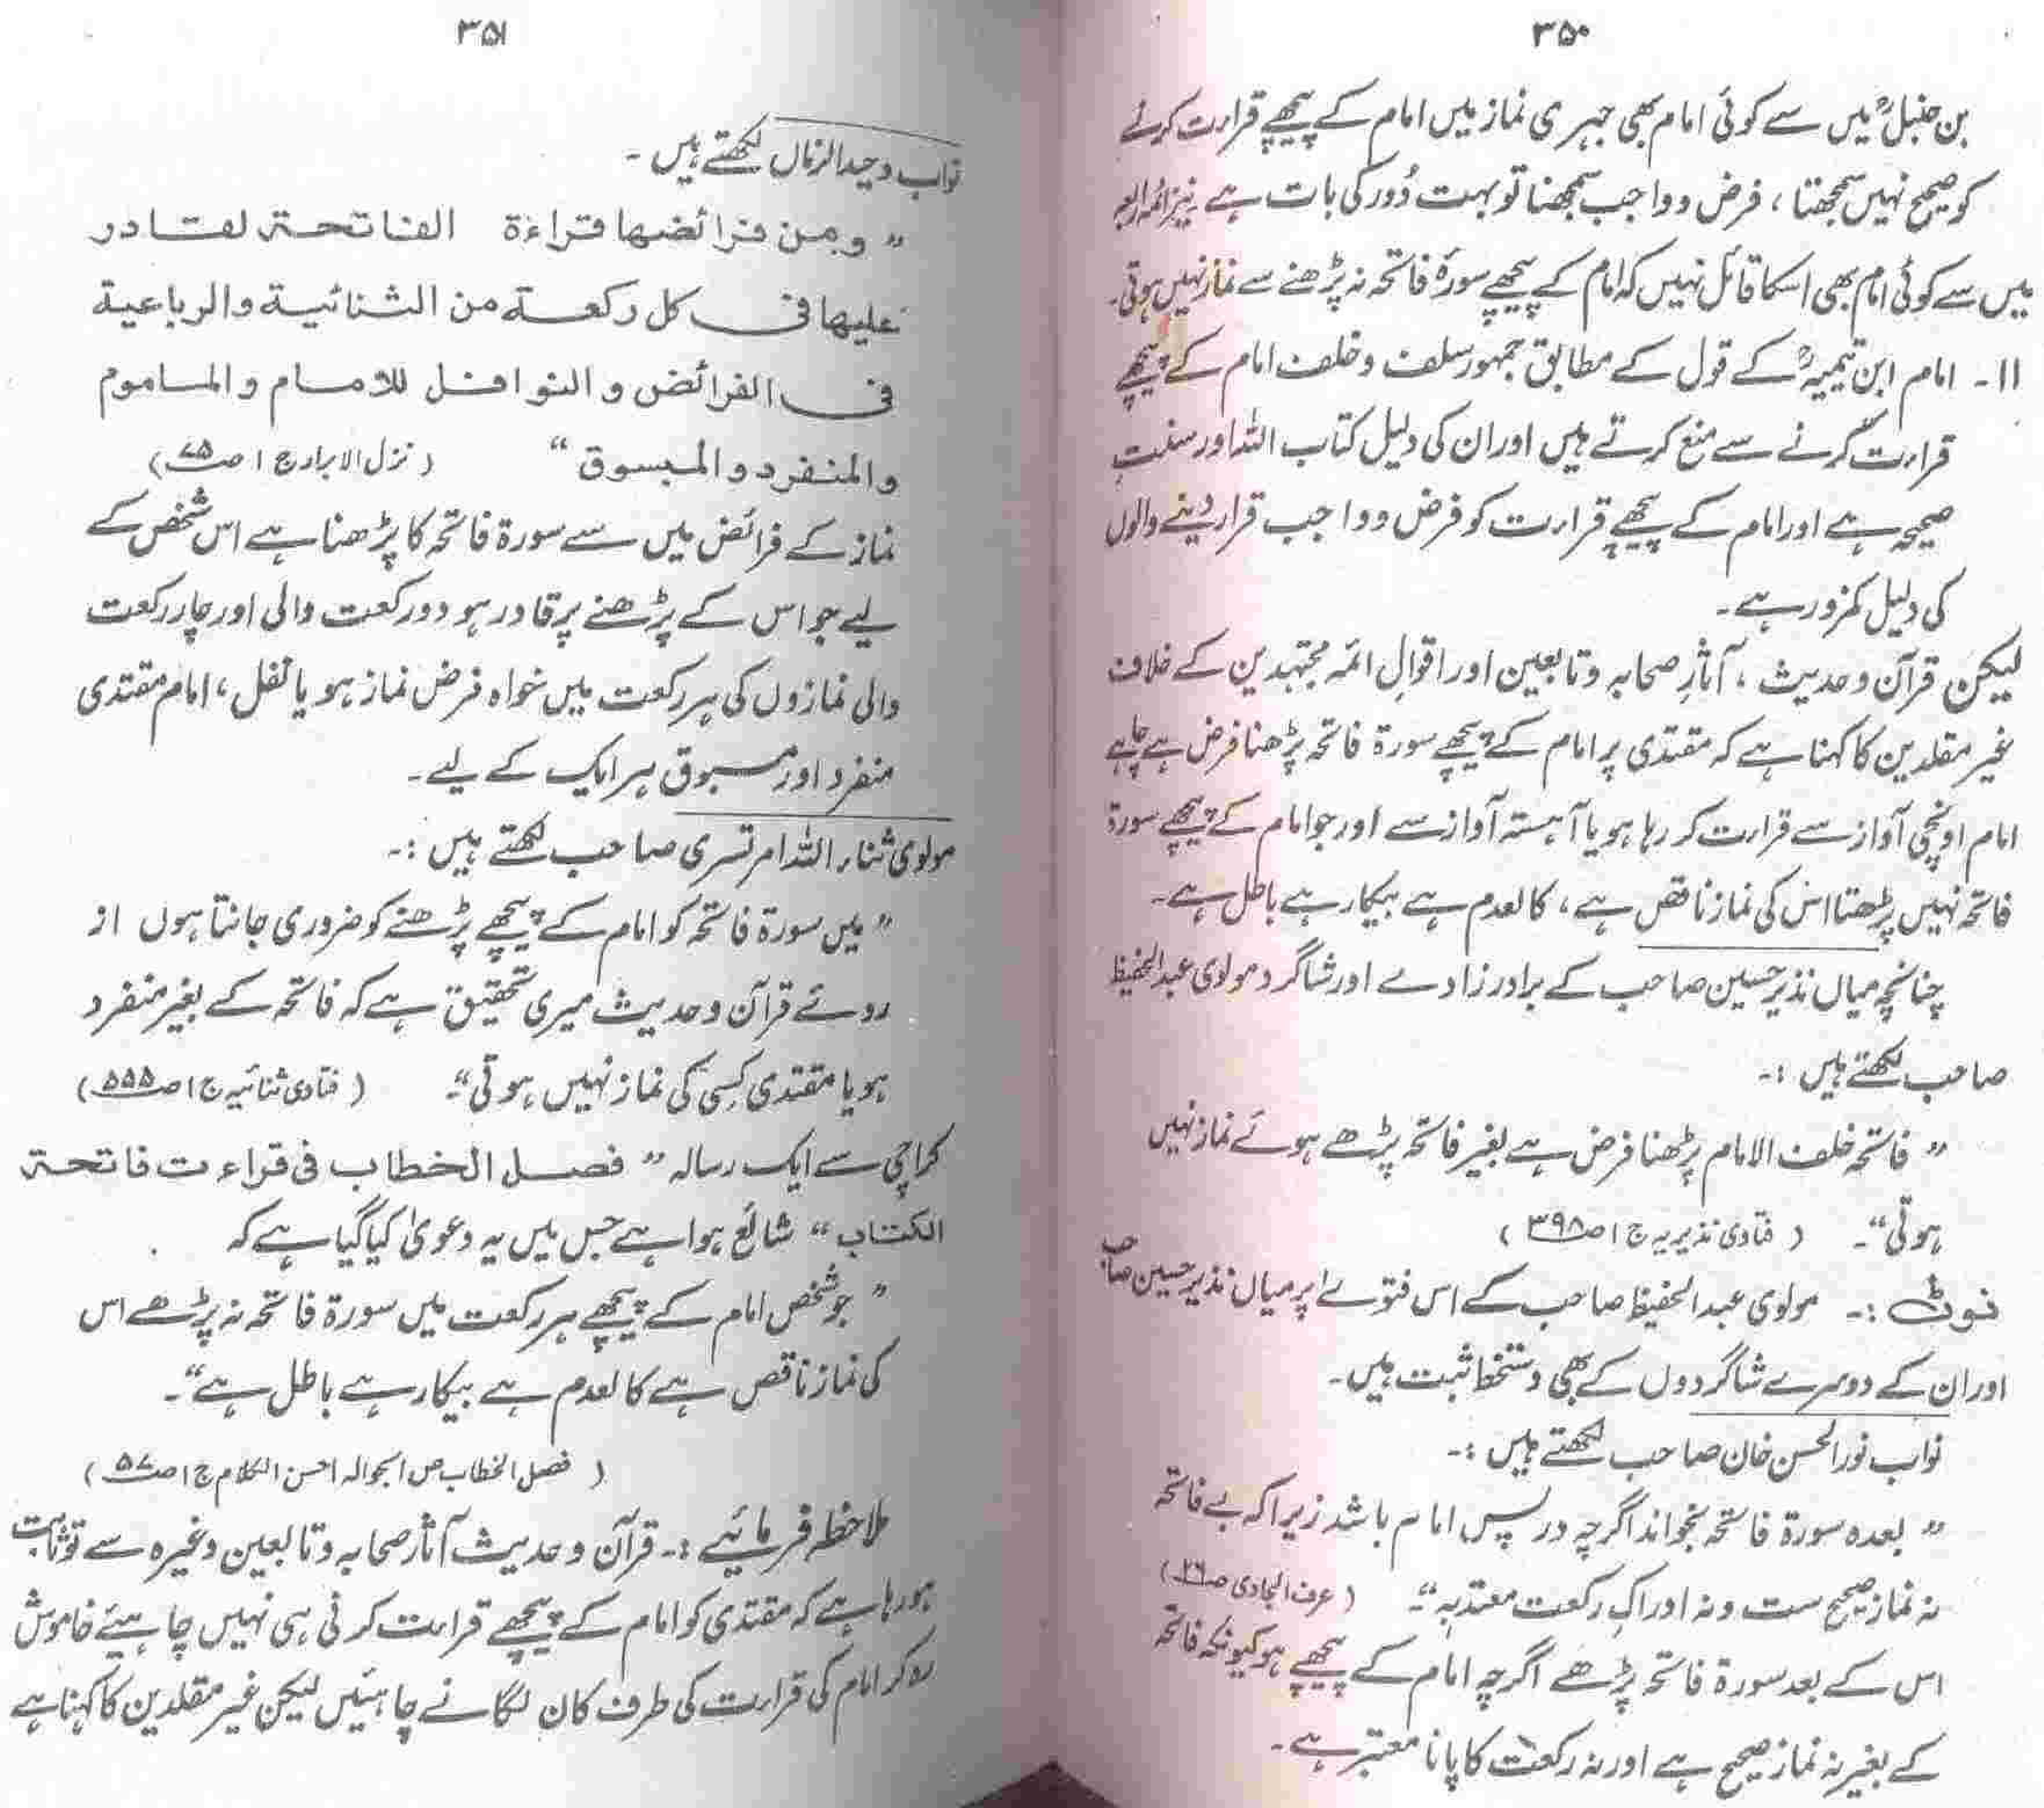 ۳۵۰
بن حنبلؒ میں سے کوئی امام بھی جہری نماز میں امام کے پیچھے قرارت کرنے
کو صحیح نہیں سمجھتا ، فرض و واجب سمجھنا تو بہت دُور کی بات ہے نیز ائمہ اربعہ
میں سے کوئی امام بھی اسکا قائل نہیں کہ امام کے پیچھے سورۂ فاتحہ نہ پڑھنے سے نماز نہیں ہوتی۔
۱۱۔ امام ابن تیمیہؒ کے قول کے مطابق جمہور سلف و خلف امام کے پیچھے
قرارت کرنے سے منع کرتے ہیں اور ان کی دلیل کتاب اللہ اور سنت
صحیحہ ہے اور امام کے پیچھے قرارت کو فرض و واجب قرار دینے والوں
کی دلیل کمزور ہے۔
لیکن قرآن و حدیث ، آثارِ صحابہ و تابعین اور اقوالِ ائمہ مجتہدین کے خلاف
غیر مقلدین کا کہنا ہے کہ مقتدی پر امام کے پیچھے سورۃ فاتحہ پڑھنا فرض ہے چاہے
امام اونچی آواز سے قرارت کر رہا ہو یا آہستہ آواز سے اور جو امام کے پیچھے سورۃ
فاتحہ نہیں پڑھتا اس کی نماز ناقص ہے ، کالعدم ہے بیکار ہے باطل ہے۔
چنانچہ میاں نذیر حسین صاحب کے برادر زادے اور شاگرد مولوی عبدالحفیظ
صاحب لکھتے ہیں :۔
” فاتحہ خلف الامام پڑھنا فرض ہے بغیر فاتحہ پڑھے ہوئے نماز نہیں
ہوتی “۔ ( فتاوی نذیریہ ج ۱ ص ۳۹۸ )
نوٹ :۔ مولوی عبدالحفیظ صاحب کے اس فتوے پر میاں نذیر حسین صاحب
اور ان کے دوسرے شاگردوں کے بھی دستخط ثبت ہیں۔
نواب نور الحسن خان صاحب لکھتے ہیں :۔
” بعدہ سورۃ فاتحہ بخواند اگرچہ در پس امام باشد زیرا کہ بے فاتحہ
نہ نماز صحیح ست و نہ ادراکِ رکعت معتد بہ “۔ ( عرف الجادی ص ۲۶ )
اس کے بعد سورۃ فاتحہ پڑھے اگرچہ امام کے پیچھے ہو کیونکہ فاتحہ
کے بغیر نہ نماز صحیح ہے اور نہ رکعت کا پانا معتبر ہے۔
۳۵۱
نواب وحید الزماں لکھتے ہیں ۔
” ومن فرائضها قراءة الفاتحة لقادر
عليها في كل ركعة من الثنائية والرباعية
في الفرائض والنوافل للامام والماموم
والمنفرد والمبسوق “ ( نزل الابرار ج ۱ ص ۷۵ )
نماز کے فرائض میں سے سورۃ فاتحہ کا پڑھنا ہے اس شخص کے
لیے جو اس کے پڑھنے پر قادر ہو دو رکعت والی اور چار رکعت
والی نمازوں کی ہر رکعت میں خواہ فرض نماز ہو یا نفل ، امام مقتدی
منفرد اور مسبوق ہر ایک کے لیے۔
مولوی ثناء اللہ امرتسری صاحب لکھتے ہیں :۔
” میں سورۃ فاتحہ کو امام کے پیچھے پڑھنے کو ضروری جانتا ہوں از
روئے قرآن و حدیث میری تحقیق ہے کہ فاتحہ کے بغیر منفرد
ہو یا مقتدی کِسی کی نماز نہیں ہوتی “۔ ( فتاوی ثنائیہ ج ۱ ص ۵۵۵ )
کراچی سے ایک رسالہ ” فصل الخطاب فی قراءت فاتحة
الکتاب “ شائع ہوا ہے جس میں یہ دعویٰ کیا گیا ہے کہ
” جو شخص امام کے پیچھے ہر رکعت میں سورۃ فاتحہ نہ پڑھے اس
کی نماز ناقص ہے کالعدم ہے بیکار ہے باطل ہے “۔
( فصل الخطاب ص ا بحوالہ احسن الکلام ج ۱ ص ۵۷ )
ملاحظہ فرمائیے :۔ قرآن و حدیث آثار صحابہ و تابعین وغیرہ سے تو ثابت
ہو رہا ہے کہ مقتدی کو امام کے پیچھے قرارت کرنی ہی نہیں چاہیئے خاموش
رہ کر امام کی قرارت کی طرف کان لگانے چاہئیں لیکن غیر مقلدین کا کہنا ہے